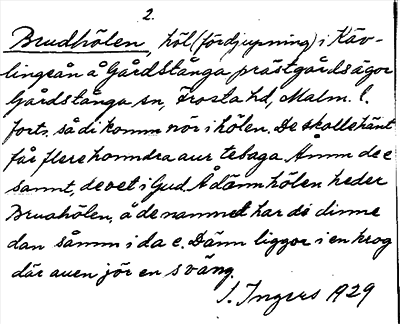 2.
Brudhölen, höl (fördjupning) i Käv-
lingeån å Gårdstånga prästgårdsägor
Gårdstånga sn, Frosta hd, Malm. l.
forts. så di komm nör i hölen. De skolle hänt
får flere honndra aur tebaga. Åmm de e
sannt, de vet i Gud. Å dänn hölen heder
Bruahölen, å de nammnet har de dinne
dan såmm i da e. Dänn liggor i en krog
där auen jör en sväng.
S. Ingers 1929